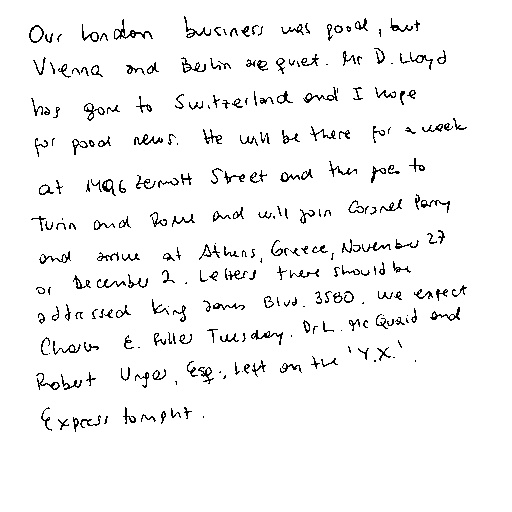 Our London business was good, but
Vienna and Berlin are quiet. Mr D. Lloyd
has gone to Switzerland and I hope
for good news. He will be there for a week
at 1496 Zermott Street and then goes to
Turin and Rome and will join Coronel Parry
and arrive at Athens, Greece, November 27
or December 2. Letters there should be
addressed King James Blvd. 3580. We expect
Charles E. Fuller Tuesday. Dr L. Mc Quaid and
Robert Unger, Esq., left on the 'Y.X.'
Express tonight.